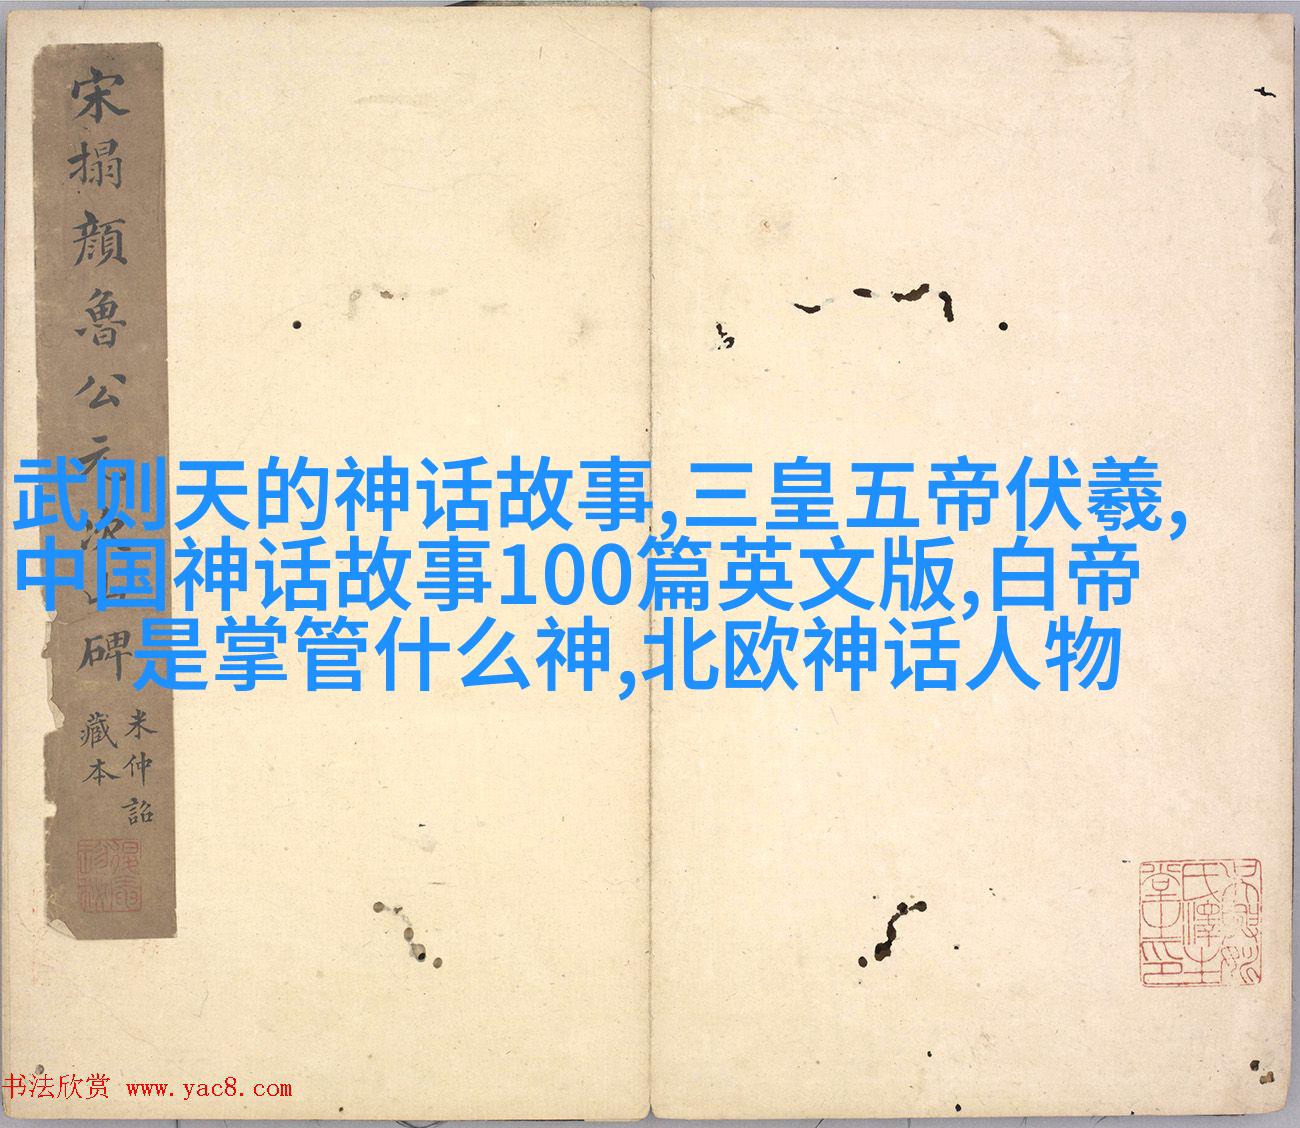 宋搨顏魯公元次山碑
米仲詔
藏本
武则天的神话故事,三皇五帝伏羲,
中国神话故事100篇英文版,白帝
是掌管什么神,北欧神话人物
书法欣赏 www.yac8.com